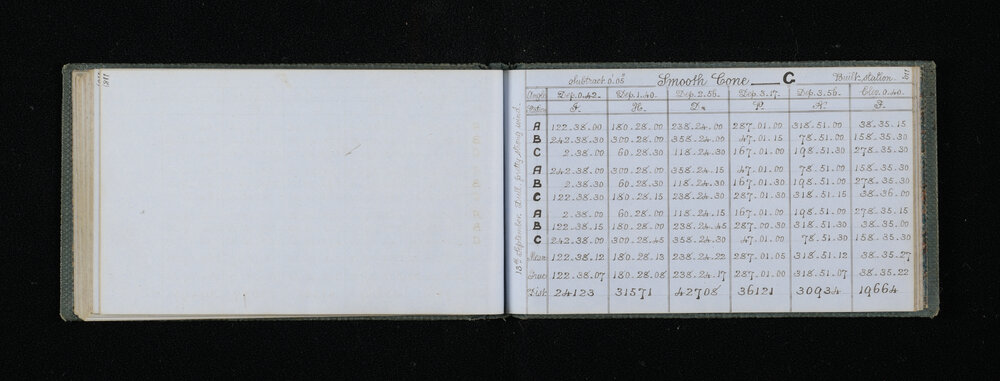 Subtract 0'.05" Smooth Cone C Built station
Angle Dep. 0.42. Dep. 1.40. Dep. 2.56. Dep. 3.17. Dep. 3.56. Elev. 0.40.
H.
A 122.38.00 180.28.00 238.24.00 287.01.00 318.51.00 38.35.15
B 242.38.30 300.28.00 358.24.00 47.01.15 78.51.00 158.35.30
C 2.38.00 60.28.30 118.24.30 167.01.00 198.51.30 278.35.30
A 242.38.00 300.28.00 358.24.15 47.01.00 78.51.00 158.35.30
B 2.38.30 60.28.30 118.24.30 167.01.30 198.51.00 278.35.30
C 122.38.30 180.28.15 238.24.30 287.01.30 318.51.15 38.36.00
A 2.38.00 60.28.00 118.24.15 167.01.00 198.51.00 278.35.15
B 122.38.15 180.28.00 238.24.45 287.00.30 318.51.00 38.35.30
C 242.38.00 300.28.45 358.24.30 47.01.00 78.51.30 158.35.30
Mean 122.38.12 180.28.13 238.24.22 287.01.05 318.51.12 38.35.27
True 122.38.07 180.28.08 238.24.17 287.01.00 318.51.07 38.35.22
Dist 24123 31571 42708 36121 30934 19664
13th September. Dull, pretty strong wind.